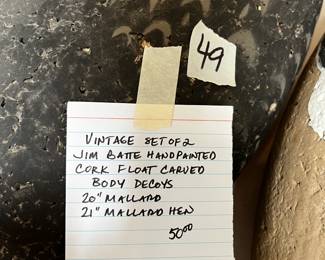 49
VINTAGE SET OF 2
JIM BATTE HANDPAINTED
CORK FLOAT CARVED
BODY DECOYS
20" MALLARD
21" MALLARD HEN
50.00